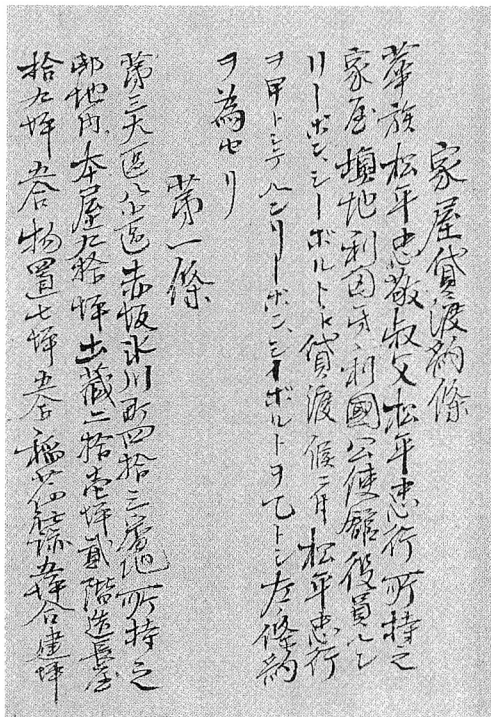 家屋貸渡約條
華族松平忠敬叔父松平忠行所持之
家屋墺地利匈牙利國公使館役員ヘン
リーボン、シーボルトヘ貸渡候ニ付松平忠行
ヲ甲トシテヘンリーボン、シイボルトヲ乙トシ左ノ條約
ヲ為セリ
第一條
第三大區八小區赤坂氷川町四拾三番地所持之
邸地内本屋九拾坪土藏二拾壱坪貳階造長屋
拾九坪五合物置七坪五合稲荷社跡五坪合建坪